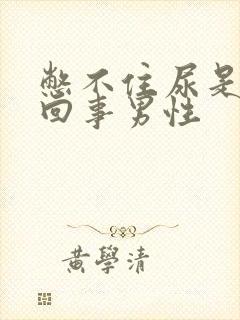 憋不住尿是
回事男性
黄學清